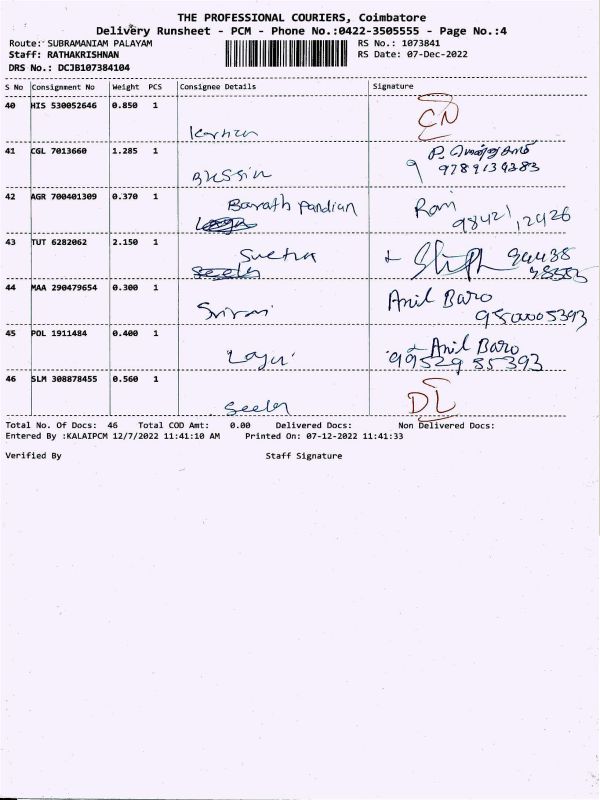 THE PROFESSIONAL COURIERS, Coimbatore
Delivery Runsheet - PCM - Phone No.:0422-3505555 - Page No.:4
Route: SUBRAMANIAM PALAYAM RS No.: 1073841
Staff: RATHAKRISHNAN RS Date: 07-Dec-2022
DRS No.: DCJB107384104
S No Consignment No Weight PCS Consignee Details Signature
40 HIS 530052646 0.850 1
CN
41 CGL 7013660 1.285 1
9789139383
42 AGR 700401309 0.370 1
Barath Pandian
98421,2926
43 TUT 6282062 2.150 1
44 MAA 290479654 0.300 1
Anil Baro
45 POL 1911484 0.400 1
Anil Baro
46 SLM 308878455 0.560 1
DL
Total No. Of Docs: 46 Total COD Amt: 0.00 Delivered Docs: Non Delivered Docs:
Entered By :KALAIPCM 12/7/2022 11:41:10 AM Printed On: 07-12-2022 11:41:33
Verified By Staff Signature